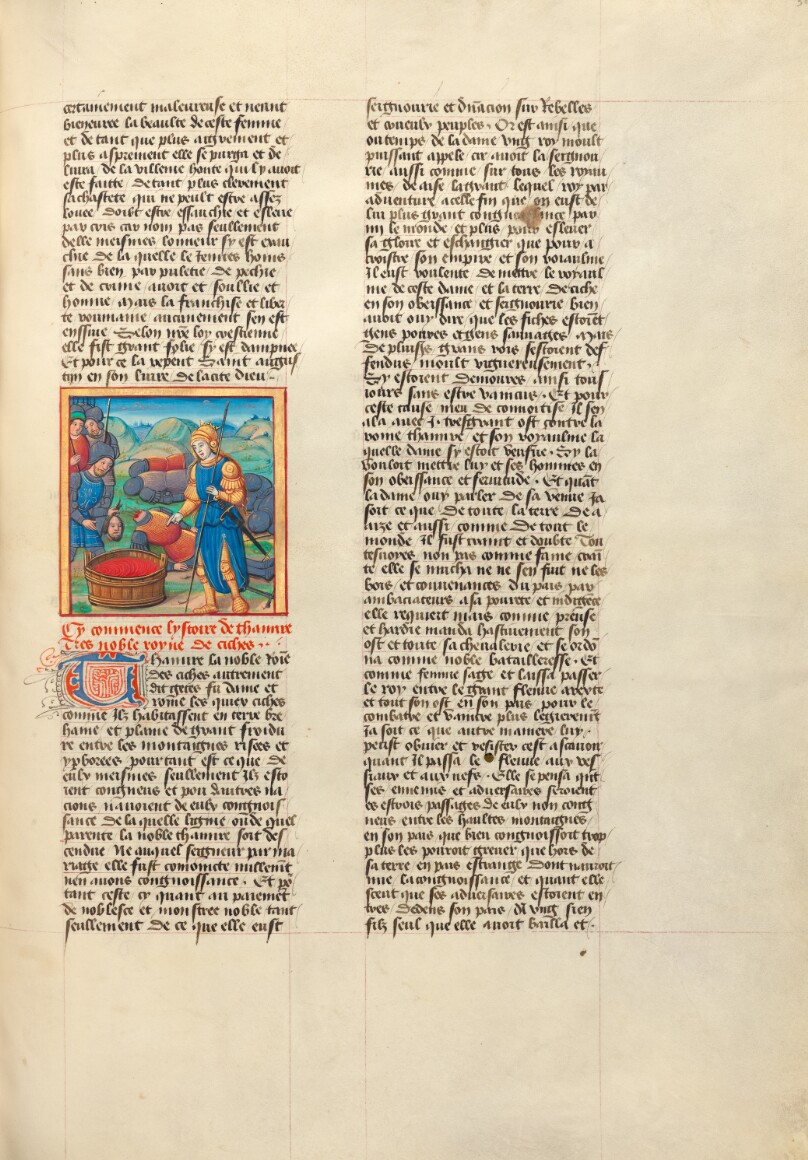 certainement maleureuse et neant
bieneuree la beaulte de ceste femme
et de tant que plus aigrement et
plus asprement elle se purga et de
liura de la villenie honte qui ly auoit
este faitte de tant plus clerement
sa chastete qui ne peult estre assez
louee doibt estre essauchie et esleue
par cris car non pas seullement
delle meismes lonneur sy est
de la quelle le Jeunes homs
sans bien par puletie de pechie
et de crime auoit et soullie et
honnie mais la franchise et liber
te roumaine aucunement sen est
enssiuie Selon nre loy crestienne
elle fist grant folie sy est dampnee
Et pour ce la repent Saint augus
tin en son liure de la cite dieu
Cy commence lystoire de thamire
Tres noble royne de ciches
Thamire la noble roine
des ciches autrement
dit getes fu dame et
roine les quieux ciches
comme Ilz habitassent en terre bre
hame et plaine de grant froidu
re entre les montaignes rifees et
yperborees pourtant est ce que de
eulx meismes seullement Ilz esto
ient congneus et pou dautres na
cions nauoient de eulx congnois
sance De la quelle ligne ou de quel
parente la noble thamire soit des
cendue Ne auquel seigneur par ma
riage elle fust comoincte nullement
nen auons congnoissance Et po
tant ceste cy quant au paiemet
de noblesce et monstree noble tant
seullement de ce que elle eust
seignourie et dnacion sur Rebelles
et crueulx peuples Or est ainsi que
ou temps de la dame vng roy moult
puissant appele cir auoit la seignou
rie aussi comme sur tous les royau
mes de aise la grant lequel roy par
aduenture a celle fin que on eust de
lui plus grant par
mi le monde et plus pour esleuer
sa gloire et eschaugier que pour a
croistre son empire et son roiaulme
Il eust voulente de mettre le royaul
me de ceste dame et la terre de ciche
en son obeissance et seignourie bien
auoit ouy dire que les siches estoiet
gens poures et gens sauuages mais
de plusrs grans rois sestoient def
fendus moult viguereusement
Et y estoient demoures ainsi tous
iours sans estre vaincus Et pour
ceste cause meu de conuoitise Il sen
ala auec I tresgrant ost contre la
roine thamire et son royaulme la
quelle dame sy estoit vefue Et la
vouloit mettre luy et ses hommes en
son obeissance et seruitude Et quat
la dame ouy parler de sa venue Ja
soit ce que de toute la terre de a
ize et aussi comme de tout le
monde Il fust craint et doubte Tou
tesuoies non pas comme fame crai
te elle se mucha ne ne sen fuit ne les
bois et conuenances du pais par
ambaciateurs a sa pourete et indigece
elle requiert mais comme preuse
et hardie manda hastiuement son
ost et toute sa cheualerie et se ordo
na comme noble batailleresse Et
comme femme sage et laissa passer
le roy entre le grant fleuue
et tout son ost en son pais pour le
combatre et vaincre plus legierement
Ja soit ce que autre maniere luy
peust obuier et resister cest a scauoir
quant Il passa le fleuue aux ves
siaux et aux nefs Elle se pensa que
ses ennemis et aduersaires seroient
es estrois passages de eulx non cong
neus entre les haultes montaignes
en son pais que bien congnoissoit trop
plus les pourroit greuer que hors de
sa terre en pais estrange Dont nauroit
nue la congnoissance et quant elle
sceut que ses aduersaires estoient en
tres dedens son pais A vng sien
filz seul que elle auoit bailla et